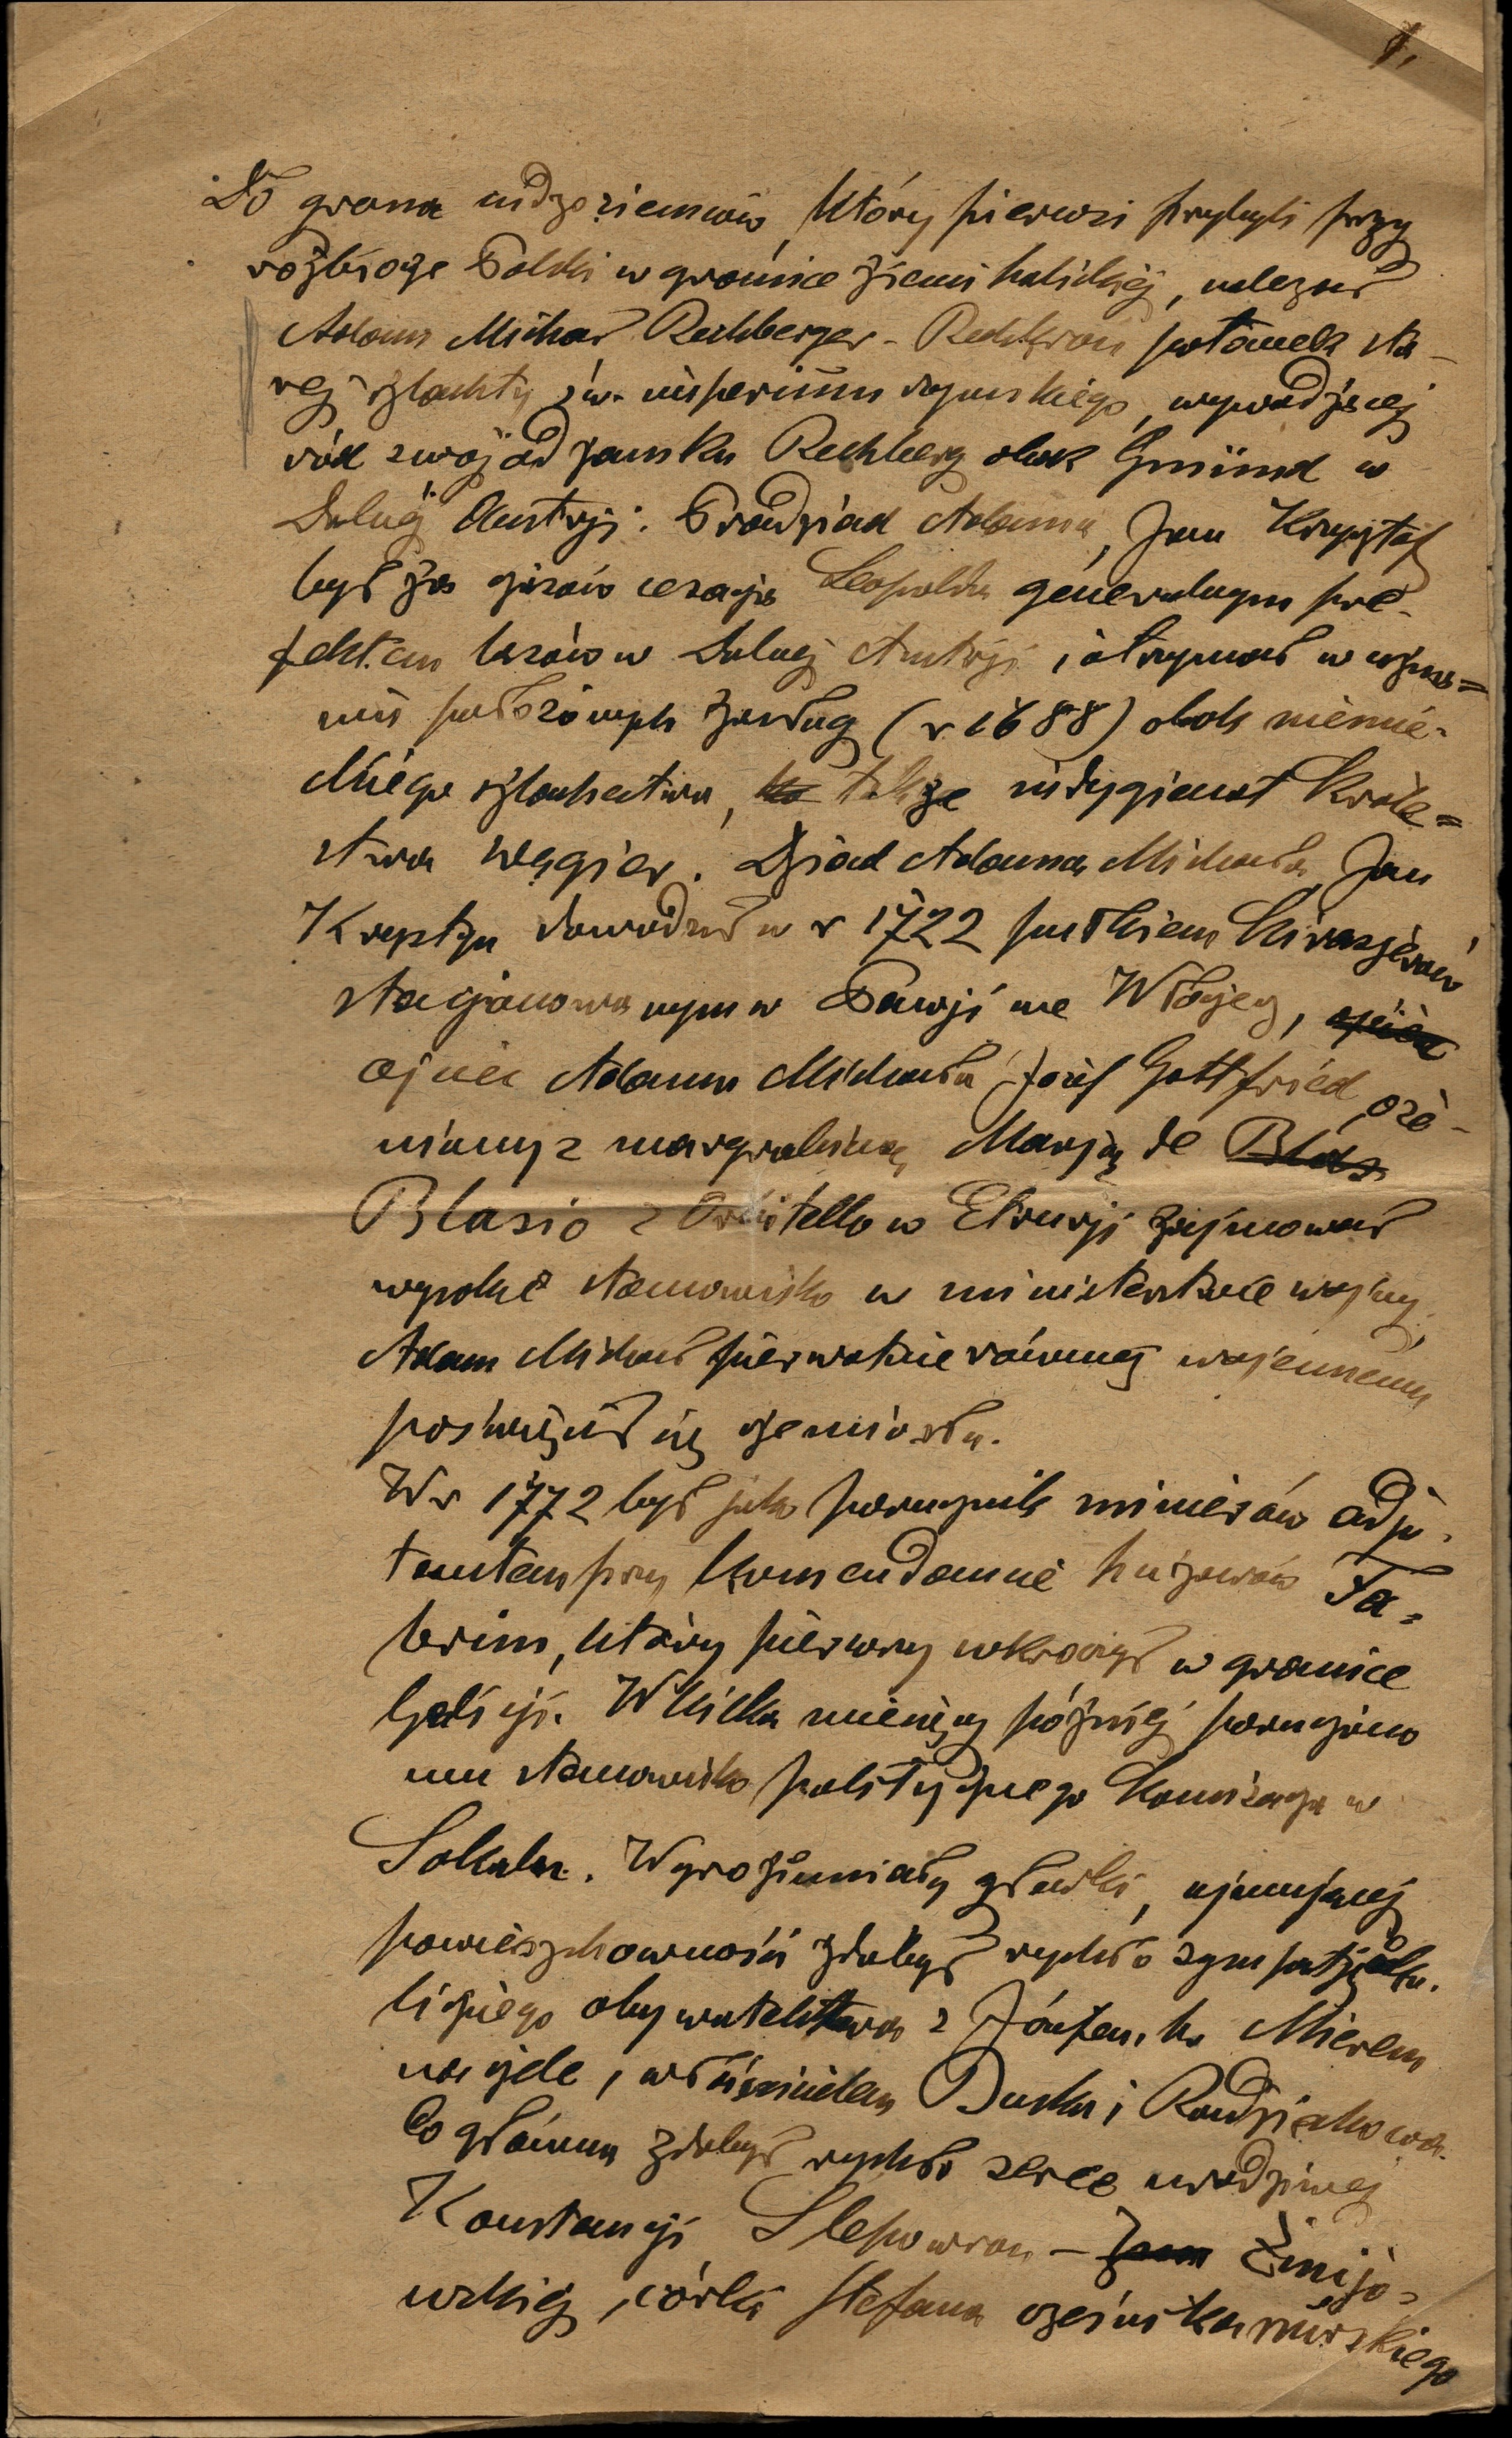 1.
Do grona cudzoziemców, który pierwsi przybyli przy
rozbiorze Polski w granice ziemi halickiej, należał
Adam Michał Rechberger-Rechkron potomek sta-
rej szlachty św. imperium rzymskiego, wywodzącej
ród swój od zamku Rechberg obok Gmünd w
Dolnej Austryi. Pradziad Adama, Jan Krzysztof
był za czasów cesarza Leopolda generalnym pre-
fektem lasów w Dolnej Austryi i otrzymał w uzna=
niu położonych zasług (r 1688) obok niemie-
ckiego szlachectwa, także indygienat Króle=
stwa Węgier. Dziad Adama Michała, Jan
Krystyn dowodził w r 1722 pułkiem kirasjerów
stacjonowanym w Pawji we Włoszech,
ojciec Adama Michała Józef Gottfried, oże-
niony z margrabiną Marją de Blas
Blasio z Orbitello w Etrurji zajmował
wysokie stanowisko w ministerstwie wojny,
Adam Michał pierwotnie również wojennemu
poświęcił się rzemiosłu.
W r 1772 był jako porucznik minierów adju-
tantem przy komendancie huzarów Ta=
brim, który pierwszy wkroczył w granice
Galicji. W kilka miesięcy później poruczono
mu stanowisko politycznego komisarza w
Sokalu. Wyrozumiały gładki, ujmującej
powierzchowności zdobył rychło sympatję oko-
licznego obywatelstwa z Józefem hr Mierem
na czele, właścicielem Buska i Radziechowa.
Co główna zdobył rychło serce urodziwej
Konstancyi Ślepowron - Żmijo=
wskiej, córki Stefana cześnika nurskiego